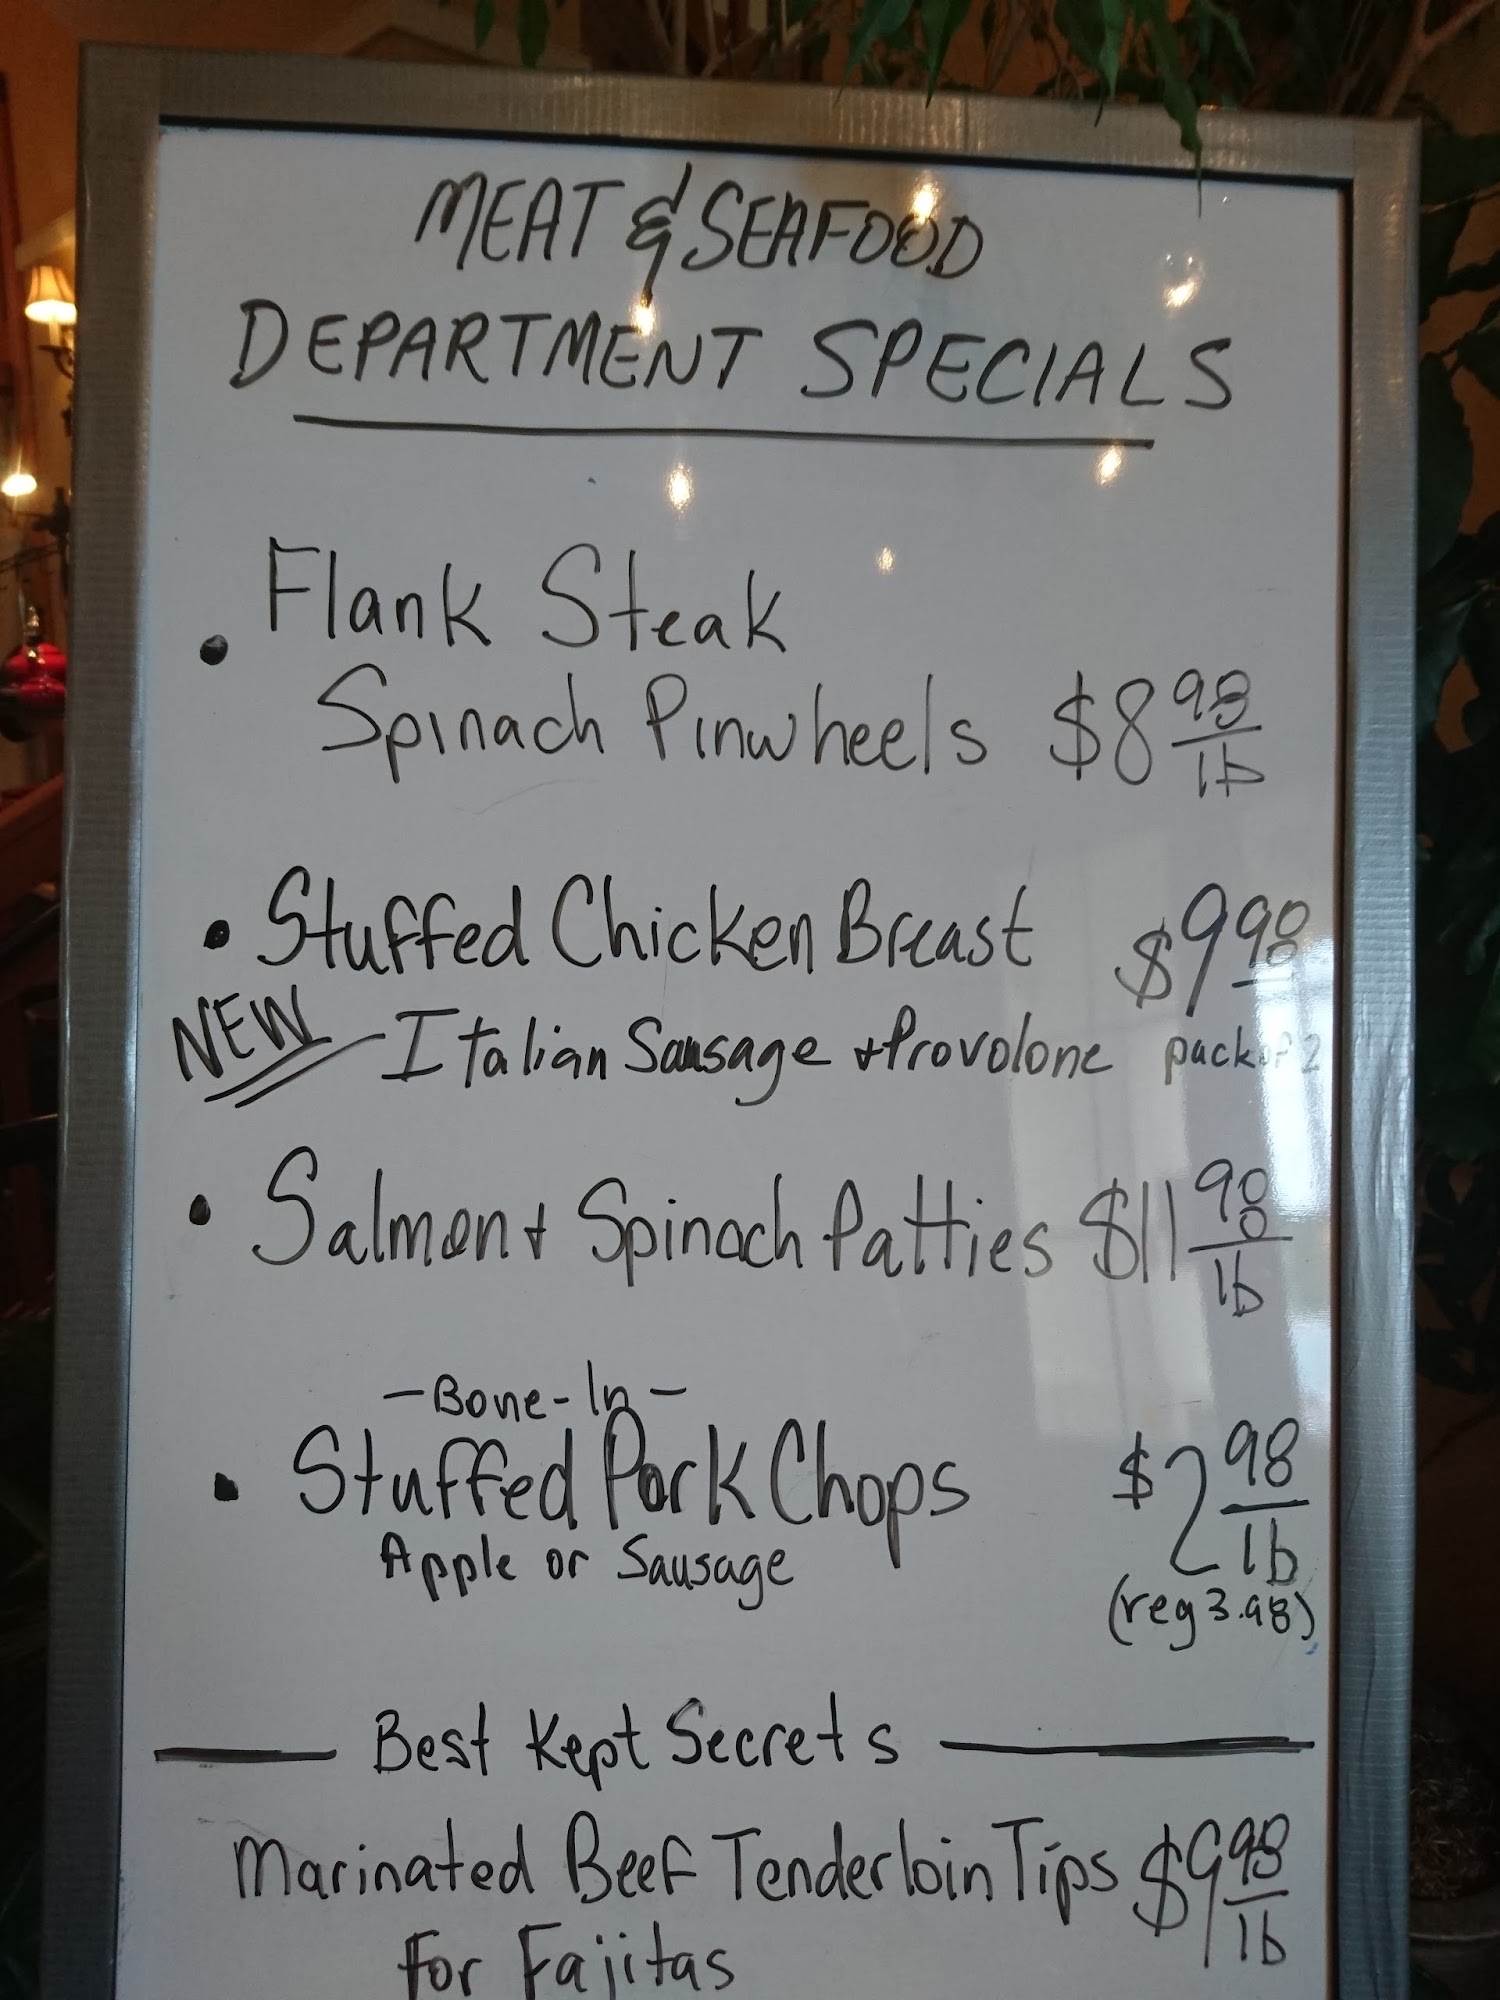 MEAT & SEAFOOD
DEPARTMENT SPECIALS
• Flank Steak
Spinach Pinwheels $8 98/lb
• Stuffed Chicken Breast $9 98
NEW - Italian Sausage + Provolone pack of 2
• Salmon + Spinach Patties $11 98/lb
- Bone-In -
• Stuffed Pork Chops $2 98/lb
Apple or Sausage (reg 3.98)
Best Kept Secrets
Marinated Beef Tenderloin Tips $9 98/lb
For Fajitas